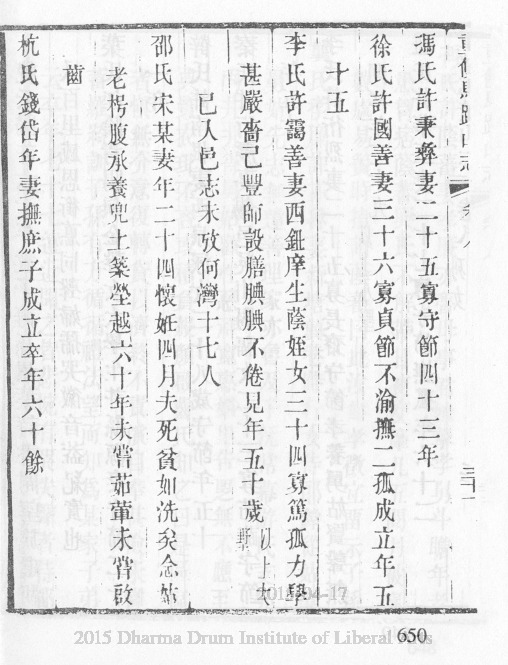 馮氏許秉彝妻二十五寡守節四十三年
徐氏許國善妻三十六寡貞節不渝撫二孤成立年五
十五
李氏許靄善妻西鉏庠生蔭姪女三十四寡篤孤力學
甚嚴嗇己豐師設膳腆腆不倦見年五十歲
已入邑志未攷何灣十七人
邵氏宋某妻年二十四懷姙四月夫死貧如洗矣念姑
老枵腹承養兜土築塋越六十年未嘗茹葷未嘗啟
齒
杭氏錢岱年妻撫庶子成立卒年六十餘
2015-04-17
2015 Dharma Drum Institute of Liberal Arts
650